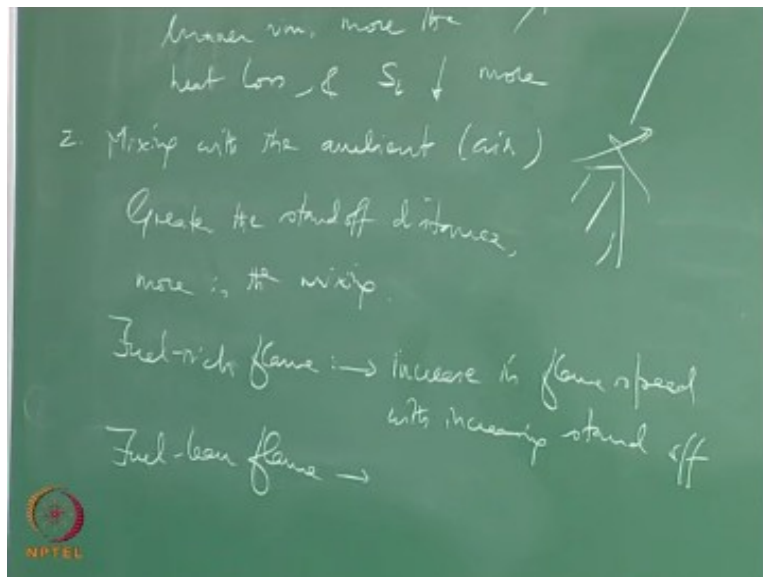 burner rim, more the
heat loss, & SL ↓ more
2. Mixing with the ambient (air)
Greater the standoff distance,
more is the mixing.
Fuel-rich flame :→ increase in flame speed
with increasing stand off
Fuel-lean flame →
NPTEL